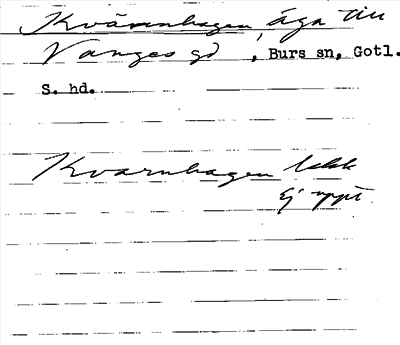 Kvärnhagen, äga till
Vanges gd, Burs sn, Gotl.
S. hd.
Kvarnhagen
Ej uppt.